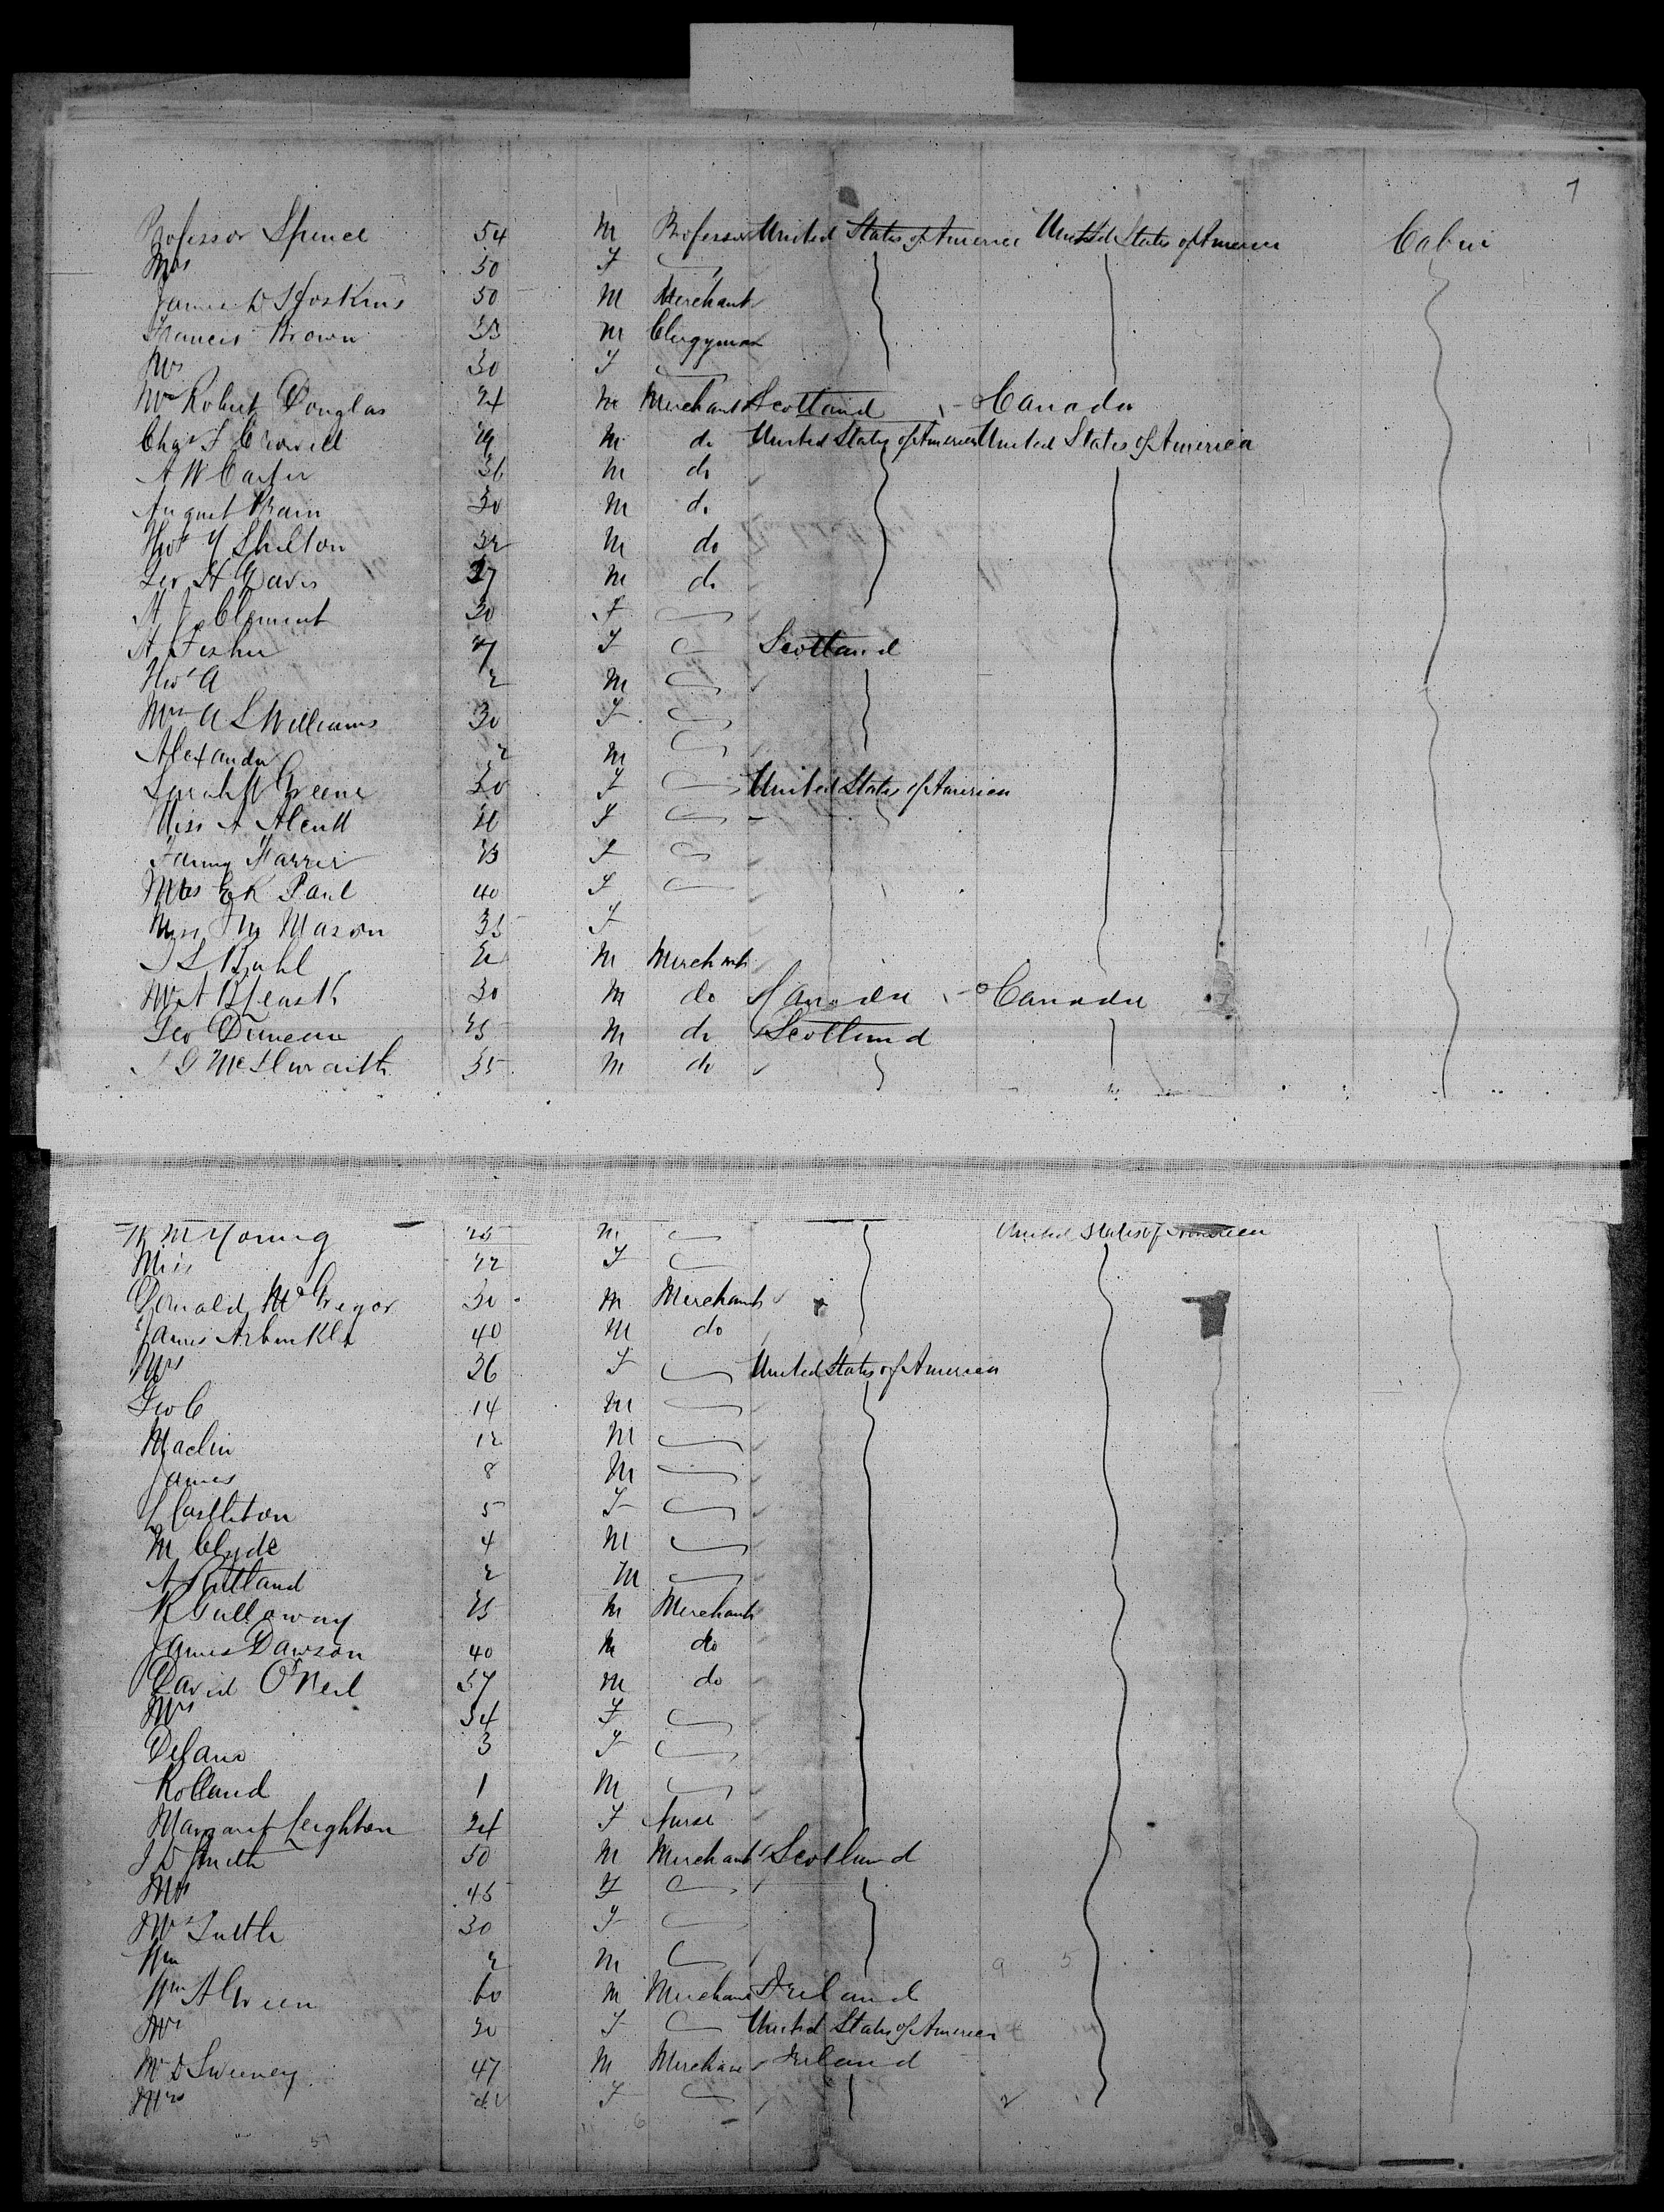 7
Professor Spence 54 M Professor United States of America United States of America Cabin
Mrs 50 F
James D Hoskins 50 M Merchant
Francis Brown 33 M Clergyman
Mrs 30 F
Robert Douglas 24 M Merchant Scotland Canada
Chas F Crowell M do United States of America United States of America
A W Carter 36 M do
August 30 M do
Shelton 32 M do
Geo H Davis 37 M do
Clement 30 F
A Fisher 27 F Scotland
A 2 M
Mrs A S Williams 30 F
Alexander 2 M
Greene 30 F United States of America
Miss A F
Fanny F
Mrs E K Paul 40 F
Mason 35 F
S L Buhl M Merchant
30 M do Canada Canada
Geo Duncan 25 M do Scotland
McIlwraith 35 M do
W M Young M United States of
Miss 22 F
Donald McGregor 30 M Merchant
James Arbuckle 40 M do
Mrs 36 F United States of America
Geo C 14 M
Maclin 12 M
James 8 M
Castleton 5 F
M Clyde 4 M
A Rutland 2 M
Galloway 25 M Merchant
James Dawson 40 M do
David O'Neil 37 M do
Mrs 34 F
Delano 3 F
Rolland 1 M
Margaret Leighton 24 F Nurse
J D Smith 50 M Merchant Scotland
Mrs 45 F
Mrs Tuttle 30 F
Wm 2 M
Wm A Green 60 M Merchant Ireland
Mrs 30 F United States of America
M D Sweeney 47 M Merchant Ireland
Mrs F